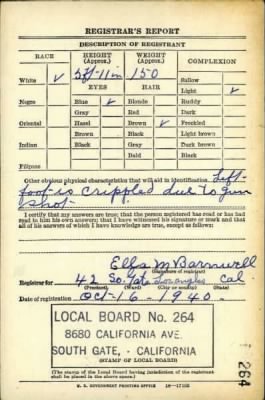 REGISTRAR'S REPORT
DESCRIPTION OF REGISTRANT
RACE HEIGHT (Approx.) WEIGHT (Approx.) COMPLEXION
White ✓ 5 ft-11 in 150 Sallow
EYES HAIR Light ✓
Negro Blue ✓ Blonde Ruddy
Gray Red Dark
Oriental Hazel Brown ✓ Freckled
Brown Black Light brown
Indian Black Gray Dark brown
Bald Black
Filipino
Other obvious physical characteristics that will aid in identification Left
foot is crippled due to gun
shot.
I certify that my answers are true; that the person registered has read or has had
read to him his own answers; that I have witnessed his signature or mark and that
all of his answers of which I have knowledge are true, except as follows:
Ella M Barnwell
(Signature of registrar)
Registrar for 42 So. Gate Los Angeles Cal.
(Precinct) (Ward) (City or county) (State)
Date of registration Oct-16-1940.
LOCAL BOARD No. 264
8680 CALIFORNIA AVE.
SOUTH GATE, - CALIFORNIA
(STAMP OF LOCAL BOARD)
(The stamp of the Local Board having jurisdiction of the registrant
shall be placed in the above space.)
U. S. GOVERNMENT PRINTING OFFICE
264